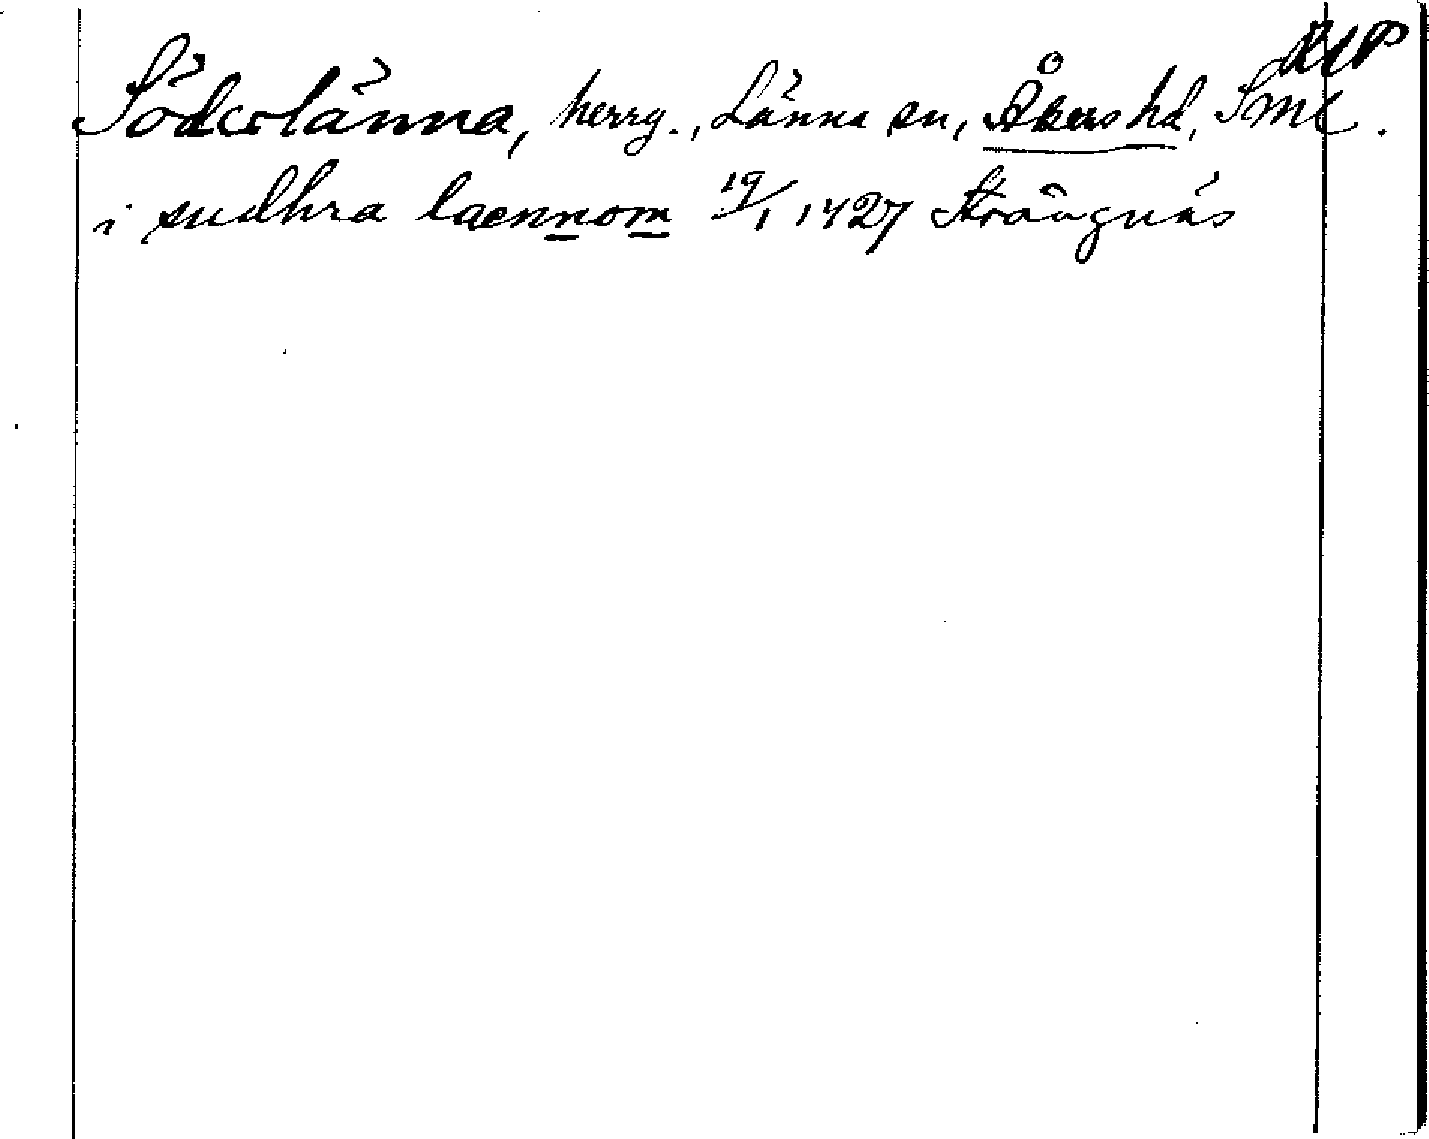 RAP
Söderlänna, herrg., Länna sn, Åkers hd, Sml.
i sudhra laennom 19/1 1427 Strängnäs